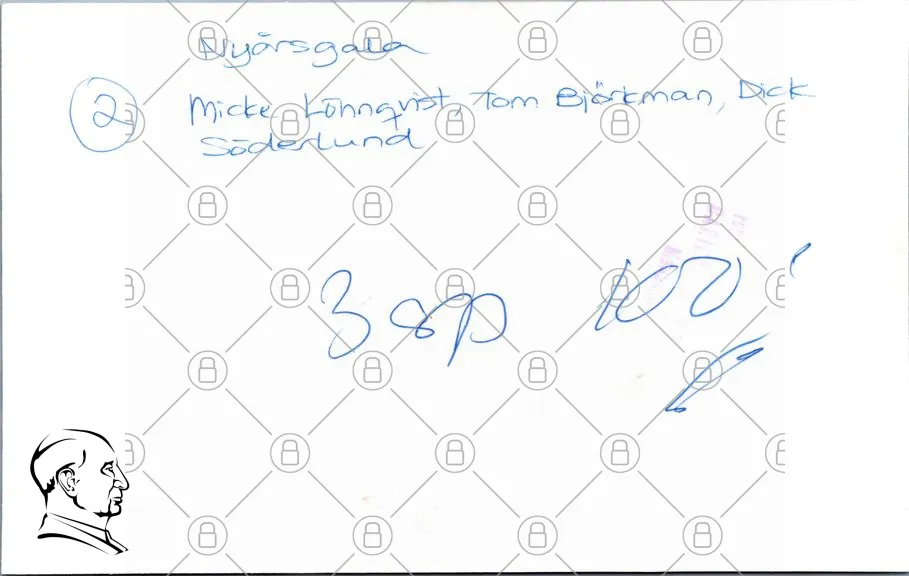 Nyårsgala
2 Micke Lönnqvist, Tom Björkman, Dick
Söderlund
3 sp 100